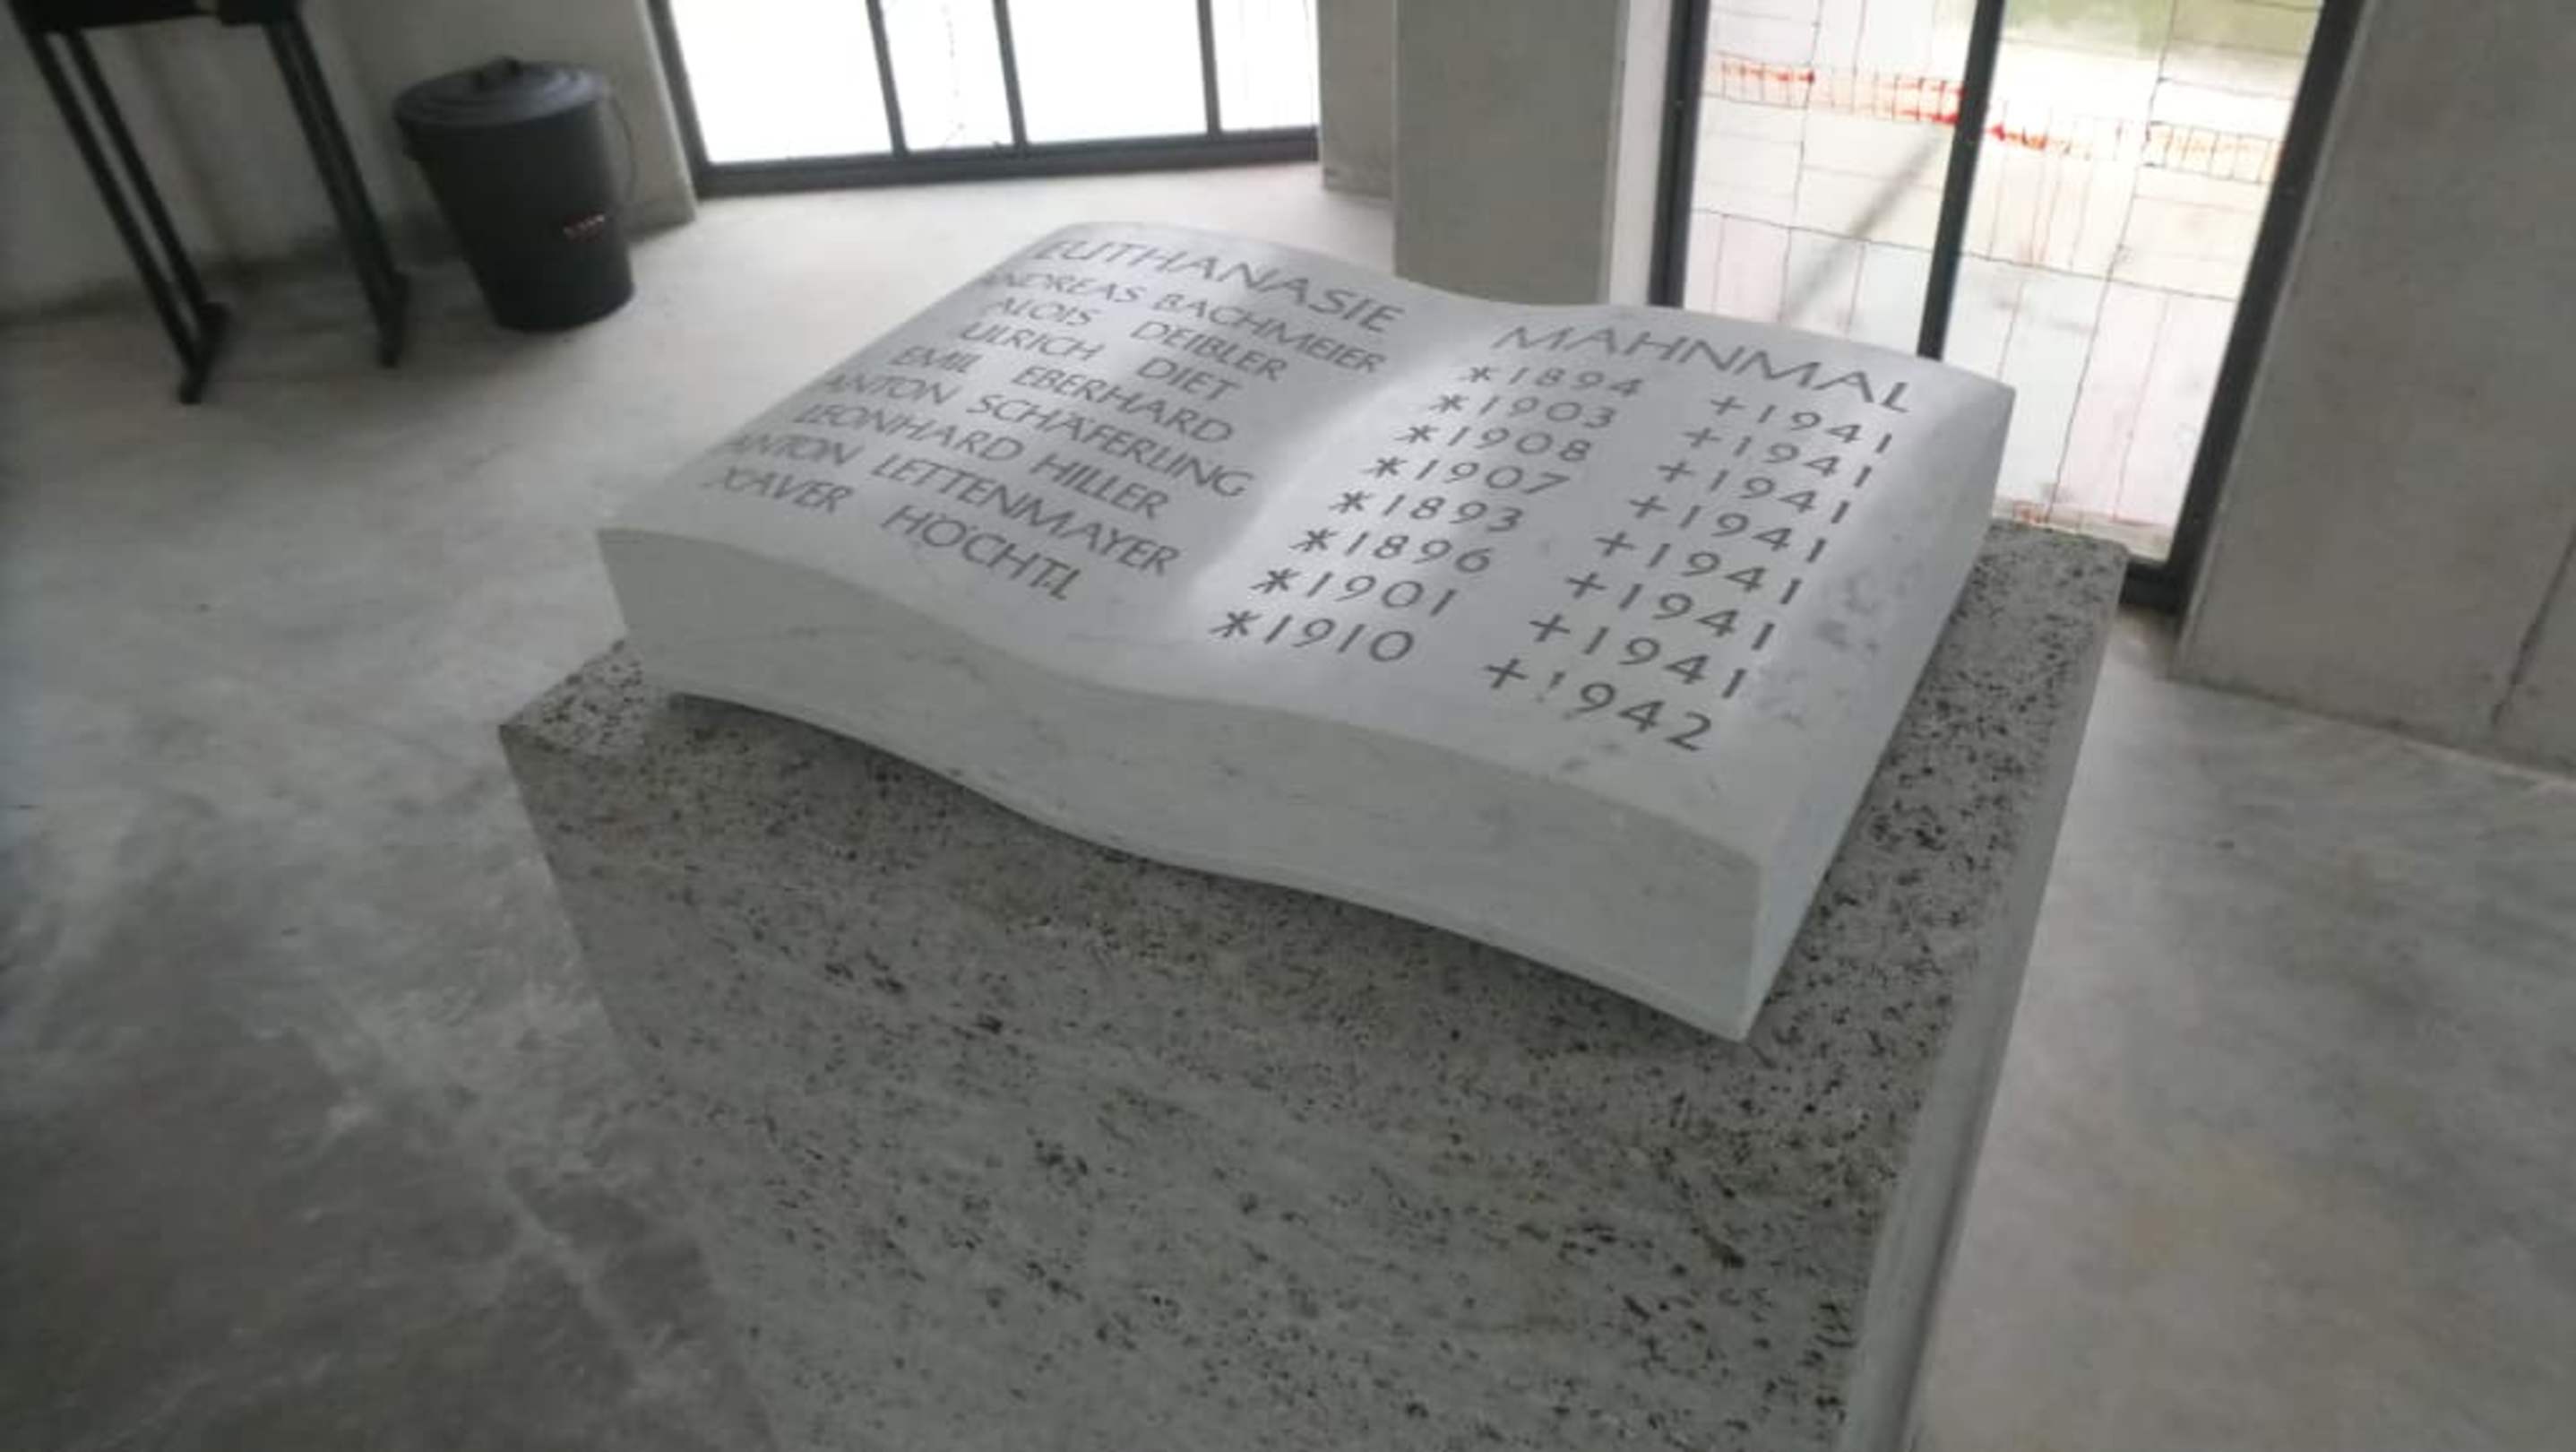 EUTHANASIE MAHNMAL
ANDREAS BACHMEIER *1894 +1941
ALOIS DEIBLER *1903 +1941
ULRICH DIET *1908 +1941
EMIL EBERHARD *1907 +1941
ANTON SCHÄFERLING *1893 +1941
LEONHARD HILLER *1896 +1941
ANTON LETTENMAYER *1901 +1941
XAVER HÖCHTL *1910 +1942